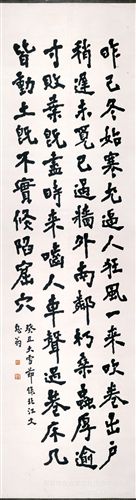 昨已冬始寒尤逼人狂風一来吹卷出户
稍遲未覓已過牆外南鄰朽桑蟲厚逾
寸败葉既盡時来嚙人車聲過巷床几
皆動土既不實倏陷窟穴
癸丑大雪節録北江文